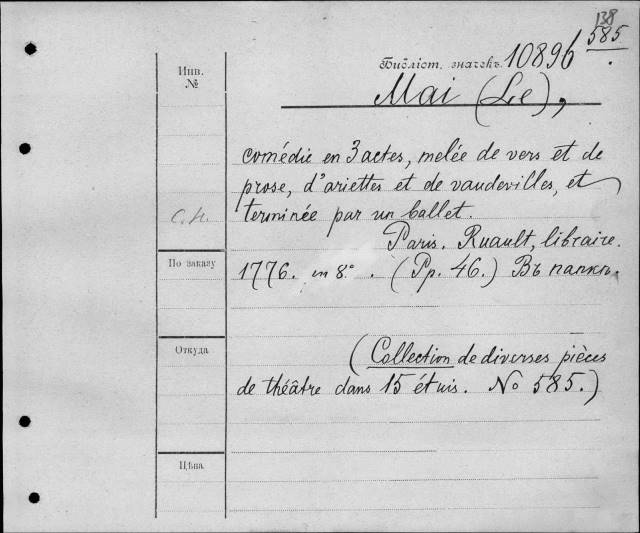 138
585
Библіот. значекъ 10896
Инв.
№
Mai (Le),
comédie en 3 actes, melée de vers et de
prose, d'ariettes et de vaudevilles, et
terminée par un ballet.
Paris. Ruault, libraire.
По заказу
1776. in 8.° . (Pp. 46.) Въ папкѣ.
Откуда
(Collection de diverses pièces
de théâtre dans 15 étuis. No 585.)
Цѣна